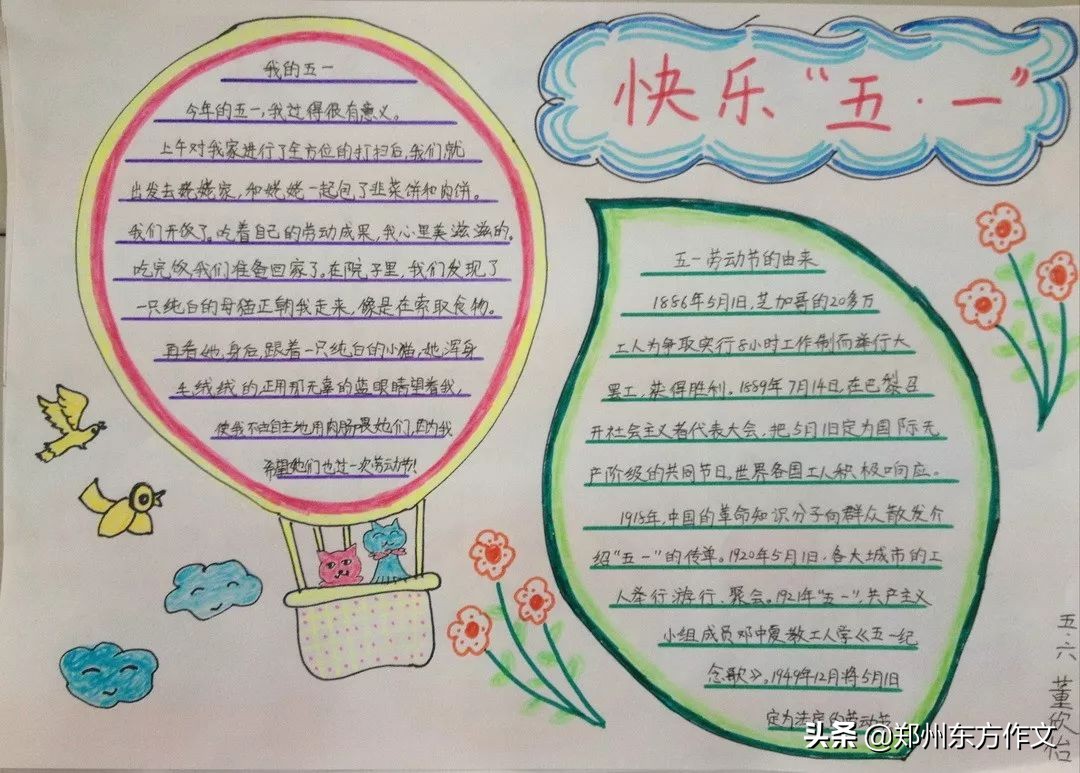 快乐“五·一”
我的五一
今年的五一,我过得很有意义。
上午对我家进行了全方位的打扫后,我们就
出发去姥姥家,和姥姥一起包了韭菜饼和肉饼。
我们开饭了。吃着自己的劳动成果,我心里美滋滋的。
吃完饭,我们准备回家了。在院子里,我们发现了
一只纯白的母猫正朝我走来,像是在索取食物。
再看她,身后跟着一只纯白的小猫,她浑身
毛绒绒的正用那无辜的蓝眼睛望着我,
使我不由自主地用肉肠喂她们,因为我
希望她们也过一次劳动节!
五一劳动节的由来
1886年5月1日,芝加哥的20多万
工人为争取实行8小时工作制而举行大
罢工,获得胜利。1889年7月14日,在巴黎召
开社会主义者代表大会,把5月1日定为国际无
产阶级的共同节日。世界各国工人积极响应。
1918年,中国的革命知识分子向群众散发介
绍“五一”的传单。1920年5月1日,各大城市的工
人举行游行、聚会。1921年“五一”,共产主义
小组成员邓中夏教工人学《五一纪
念歌》。1949年12月将5月1日
定为法定的劳动节
五·六 董欣怡
头条 @郑州东方作文